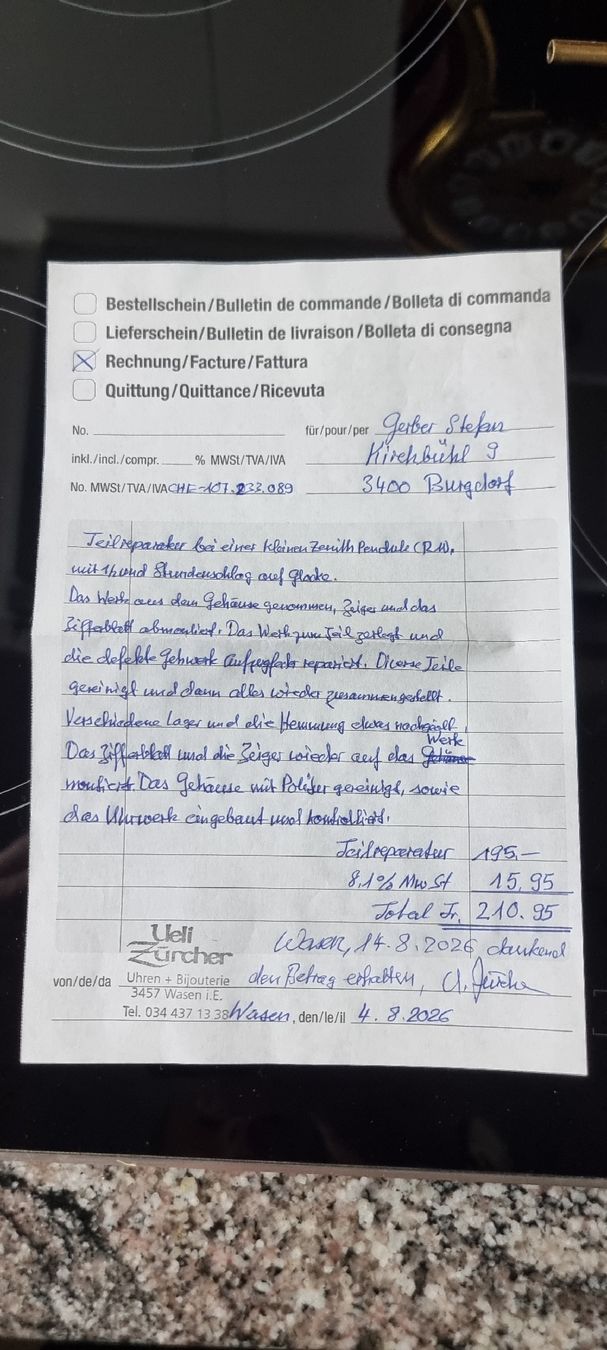 Bestellschein/Bulletin de commande/Bolleta di commanda
Lieferschein/Bulletin de livraison/Bolleta di consegna
Rechnung/Facture/Fattura
Quittung/Quittance/Ricevuta
No. für/pour/per Gerber Stefan
inkl./incl./compr. % MWSt/TVA/IVA Kirchbühl 9
No. MWSt/TVA/IVA CHE-107.233.089 3400 Burgdorf
Teilreparatur bei einer kleinen Zenith Pendule
mit 1/2 und Stundenschlag auf Glocke.
Das Werk aus dem Gehäuse genommen, Zeiger und das
Zifferblatt abmontiert. Das Werk zum Teil zerlegt und
die defekte Gehwerk repariert. Diverse Teile
gereinigt und dann alles wieder zusammengestellt.
Verschiedene Lager und die Hemmung etwas nachgeölt.
Das Zifferblatt und die Zeiger wieder auf das Werk
montiert. Das Gehäuse mit Politur gereinigt, sowie
das Uhrwerk eingebaut und kontrolliert.
Teilreparatur 195.—
8,1% MwSt 15.95
Total Fr. 210.95
Ueli
Zürcher
Wasen, 14.8.2026 dankend
von/de/da Uhren + Bijouterie den Betrag erhalten, U. Zürcher
3457 Wasen i.E.
Tel. 034 437 13 38 Wasen, den/le/il 4.8.2026